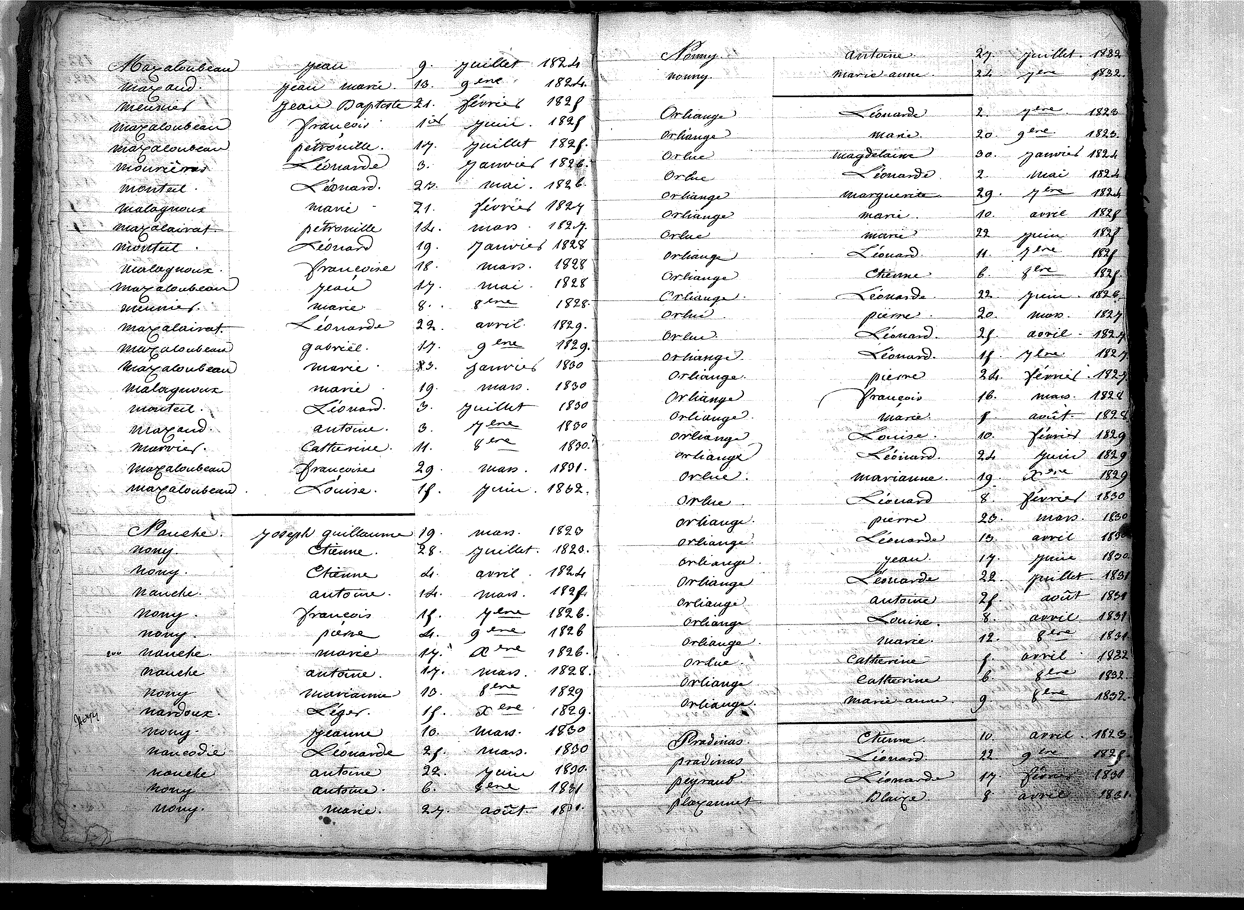 Mazaloubeau jean 9. juillet 1824
mazaud. jean marie. 13. 9ere 1824.
meunier jean Baptiste 21. février 1825
mazaloubeau françois 1er juin. 1825
mazaloubeau pétrouille. 17. juillet 1825.
mourieras Léonarde 3. janvier 1826.
monteil. Léonard. 23. mai. 1826.
malagnoux marie 21. février 1827
mazalairat pétrouille 14. mars. 1827.
monteil. Léonard 19. janvier 1828
malagnoux. françoise 18. mars. 1828
mazaloubeau jean 17. mai 1828
meunier. marie 8. 8ere 1828.
mazalairat Léonarde 22. avril. 1829.
mazaloubeau gabriel. 17. 9ere 1829.
mazaloubeau marie. 23. janvier 1830
malagnoux marie 19. mars. 1830
monteil. Léonard. 3. juillet 1830
mazaud. antoine. 3. 7ere 1830
marvier. Catherine 11. 8ere 1830.
mazaloubeau françoise 29. mars. 1831.
mazaloubeau. Louise. 15. juin. 1832.
Nauche. joseph guillaume 19. mars. 1823
nony Etienne. 28. juillet. 1823.
nony. Etienne 4. avril. 1824
nauche. antoine. 14. mars. 1825.
nony. françois 15. 7ere 1826.
nony. pierre 4. 9ere 1826
nauche. marie 17. Xere 1826.
nauche antoine. 17. mars. 1828.
nony marianne 10. 8ere 1829
nardoux. Léger. 15. Xere 1829.
nony. jeanne 10. mars. 1830
nancodie Léonarde 25. mars. 1830
nauche antoine 22. juin 1830.
nony antoine. 6. 8ere 1831
nony. marie. 27. août. 1831.
Nonny. antoine. 27. juillet. 1832
nonny. marie anne. 24 7ere 1832.
Orliange Léonarde 2. 7ere 1823
orliange marie. 20. 9ere 1823.
orlue magdelaine 30. janvier 1824
orlue Léonarde 2. mai 1824
orliange marguerite 29. 7ere 1824
orliange marie. 10. avril 1825
orlue marie 22. juin 1825
orliange Léonard 11. 7ere 1825
orliange Etienne 6. 8ere 1825.
orliange. Léonarde 22. juin. 1826
orlue. pierre. 20. mars. 1827.
orlue Léonard. 25 avril. 1827.
orliange Léonard. 15. 7ere 1827.
orliange. pierre 24. février. 1827.
orliange françois 16. mars. 1828
orliange. marie 8 août. 1828
orliange Louise. 10. février 1829
orliange Léonard. 24 juin 1829
orlue. marianne. 19. Xere 1829
orlue. Léonard 8. février 1830
orliange. pierre 23. mars. 1830
orliange. Léonarde 13. avril 1830
orliange jean 17. juin 1830.
orliange Léonarde 22. juillet 1831
orliange antoine 25. août 1831
orliange Louise. 8. avril 1831
orliange. marie. 12. 8ere 1831
orlue. Catherine 5. avril. 1832
orliange. Catherine 6. 8ere 1832.
orliange. marie anne. 9. 8ere 1832.
Pradinas Etienne. 10. avril. 1823.
pradinas Léonard. 22 9ere 1825.
peyraud Léonarde 17. février 1831
plazannet Blaize 8 avril 1831.